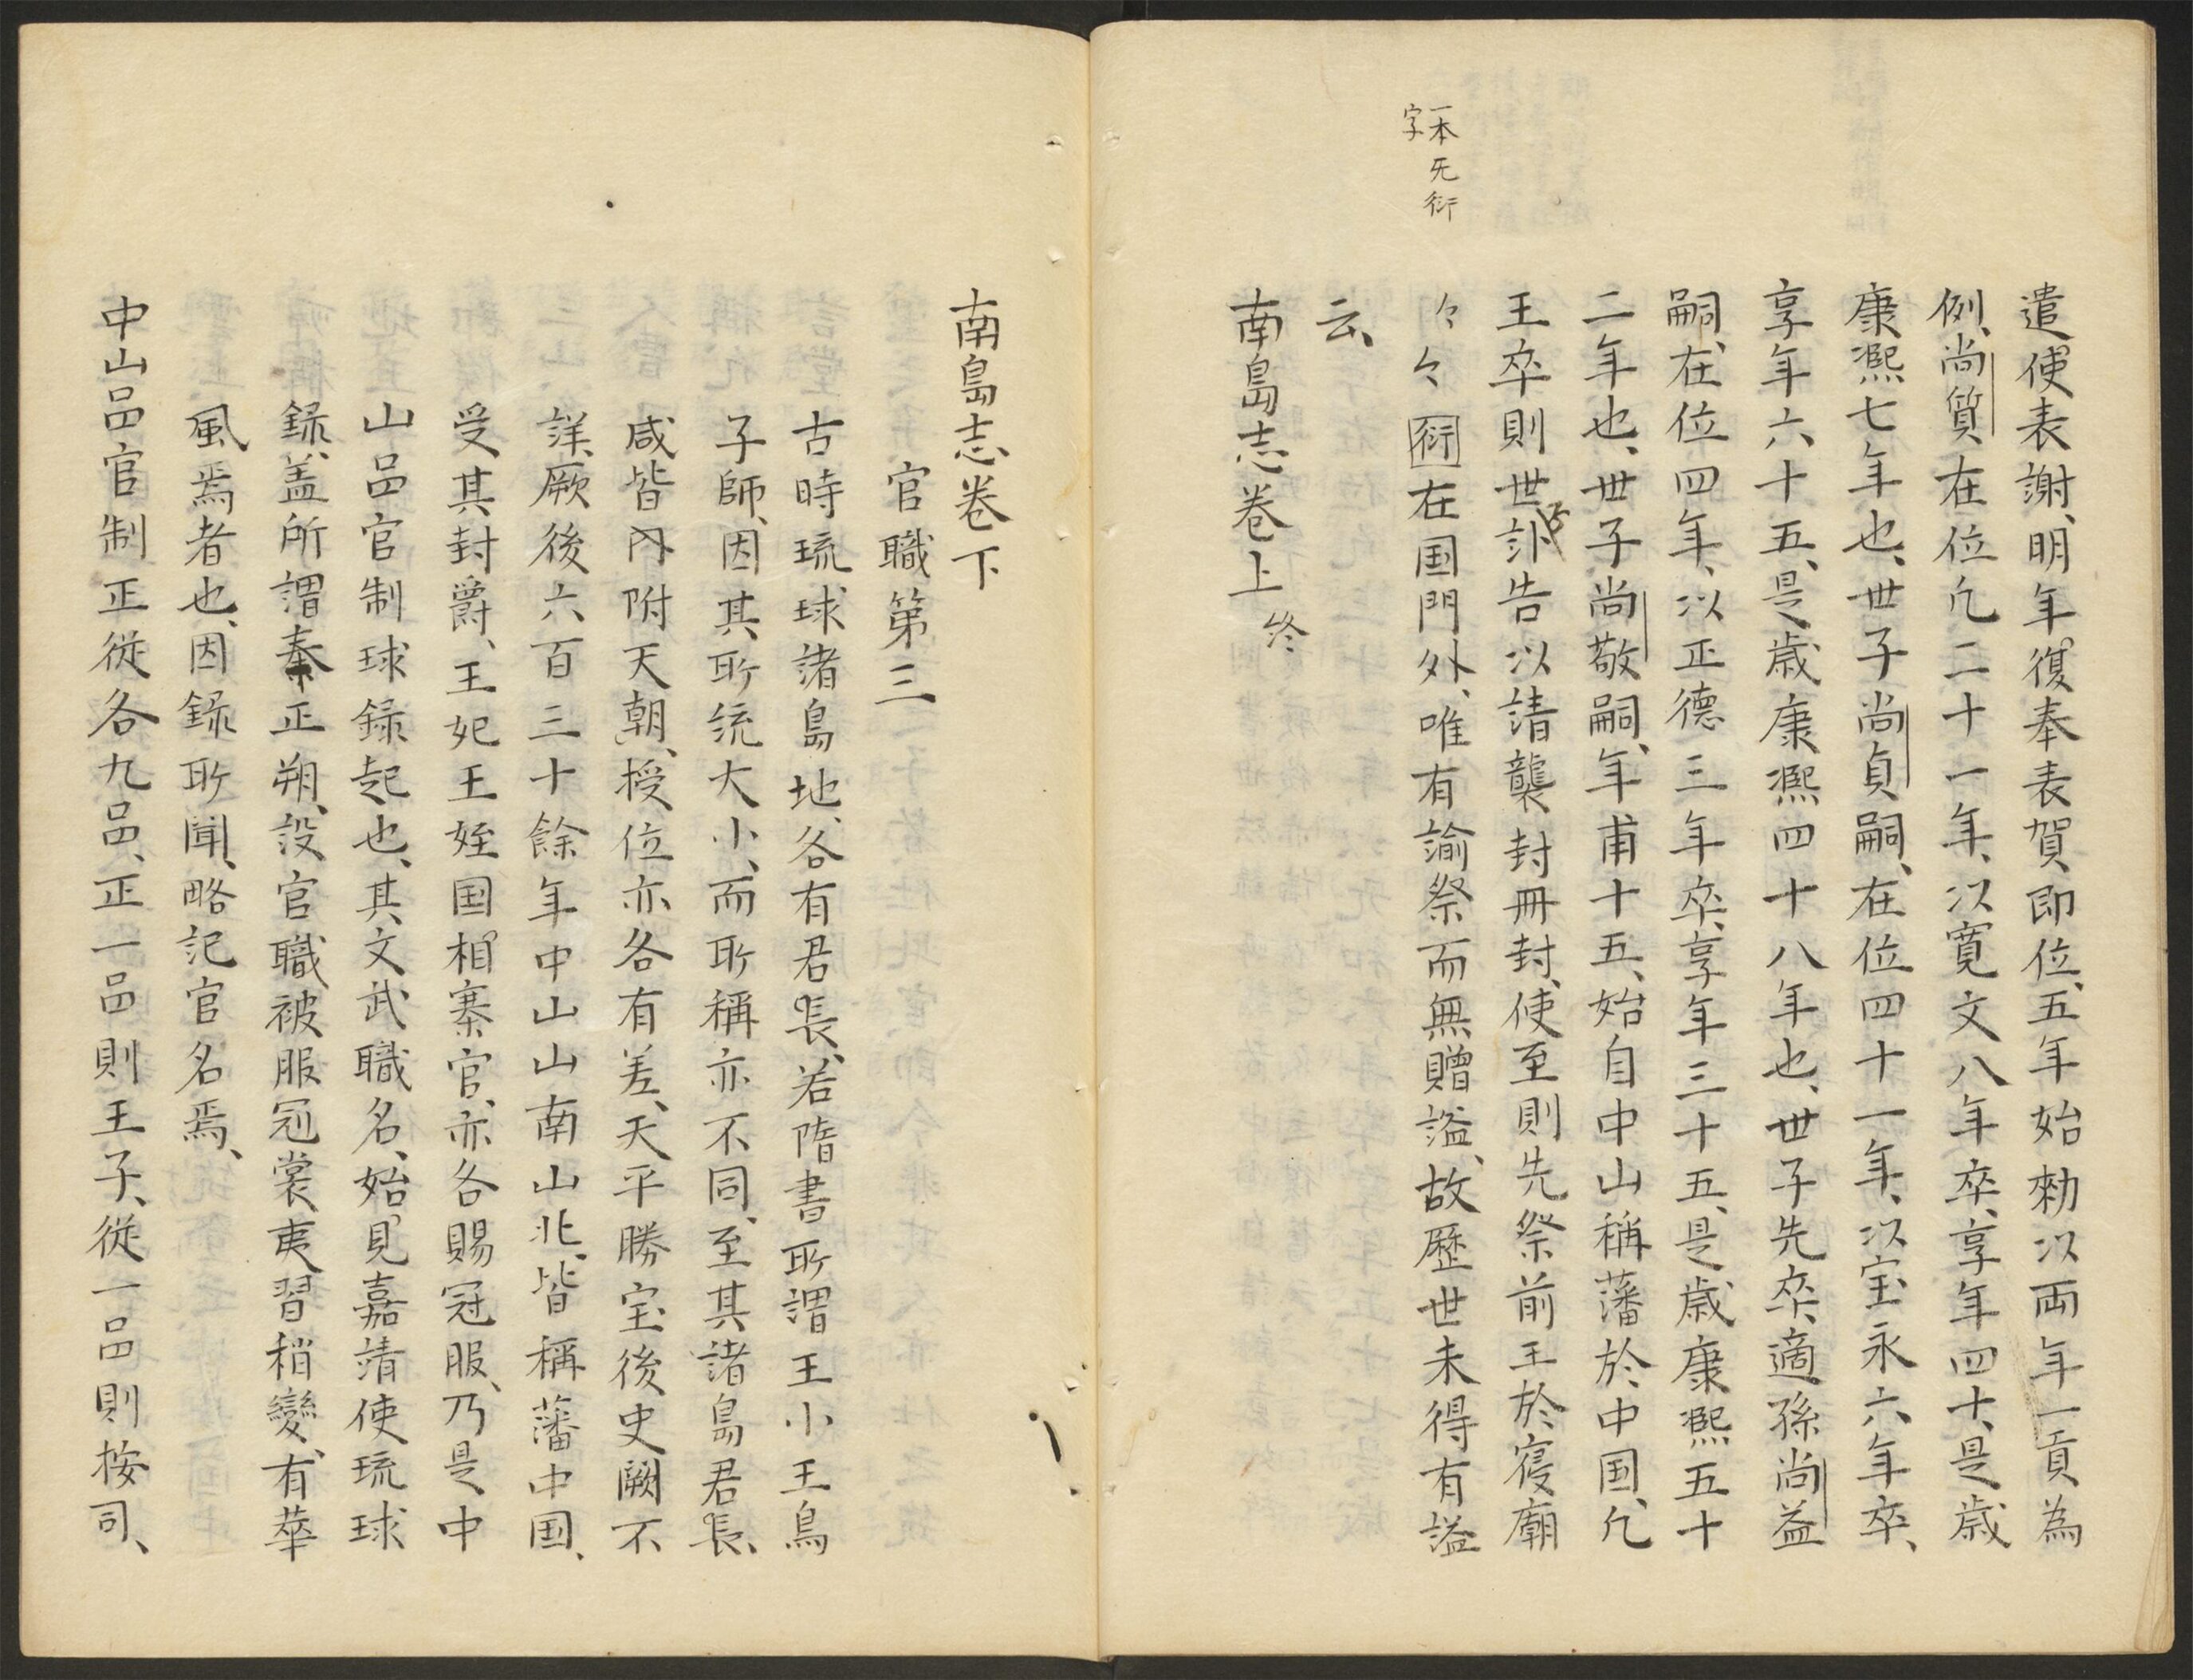 遣使表謝、明年復奉表賀、即位、五年始勑以両年一貢為
例、尚質在位凢二十一年、以寛文八年卒、享年四十、是歳
康熈七年也、世子尚貞嗣、在位四十一年、以宝永六年卒、
享年六十五、是歳康熈四十八年也、世子先卒、適孫尚益
嗣、在位四年、以正徳三年卒、享年三十五、是歳康熈五十
二年也、世子尚敬嗣、年甫十五、始自中山稱藩於中国、凢
王卒則世子訃告以請襲封冊封、使至則先祭前王於寝廟
々々衍在国門外、唯有諭祭而無贈謚、故歴世未得有謚
一本旡衍
字
云、
南島志巻上 終
南島志巻下
官職第三
古時琉球諸島地、各有君長、若隋書所謂王小王鳥
子師、因其所統大小、而所稱亦不同、至其諸島君長、
咸皆内附天朝、授位亦各有差、天平勝宝後史闕不
詳、厥後六百三十餘年中山山南山北、皆稱藩中国、
受其封爵、王妃王姪国相寨官、亦各賜冠服、乃是中
山品官制球録起也、其文武職名、始見嘉靖使琉球
録、盖所謂奉正朔、設官職被服冠裳夷習稍變、有華
風焉者也、因録所聞、略記官名焉、
中山品官制正從各九品、正一品則王子、從一品則按司、